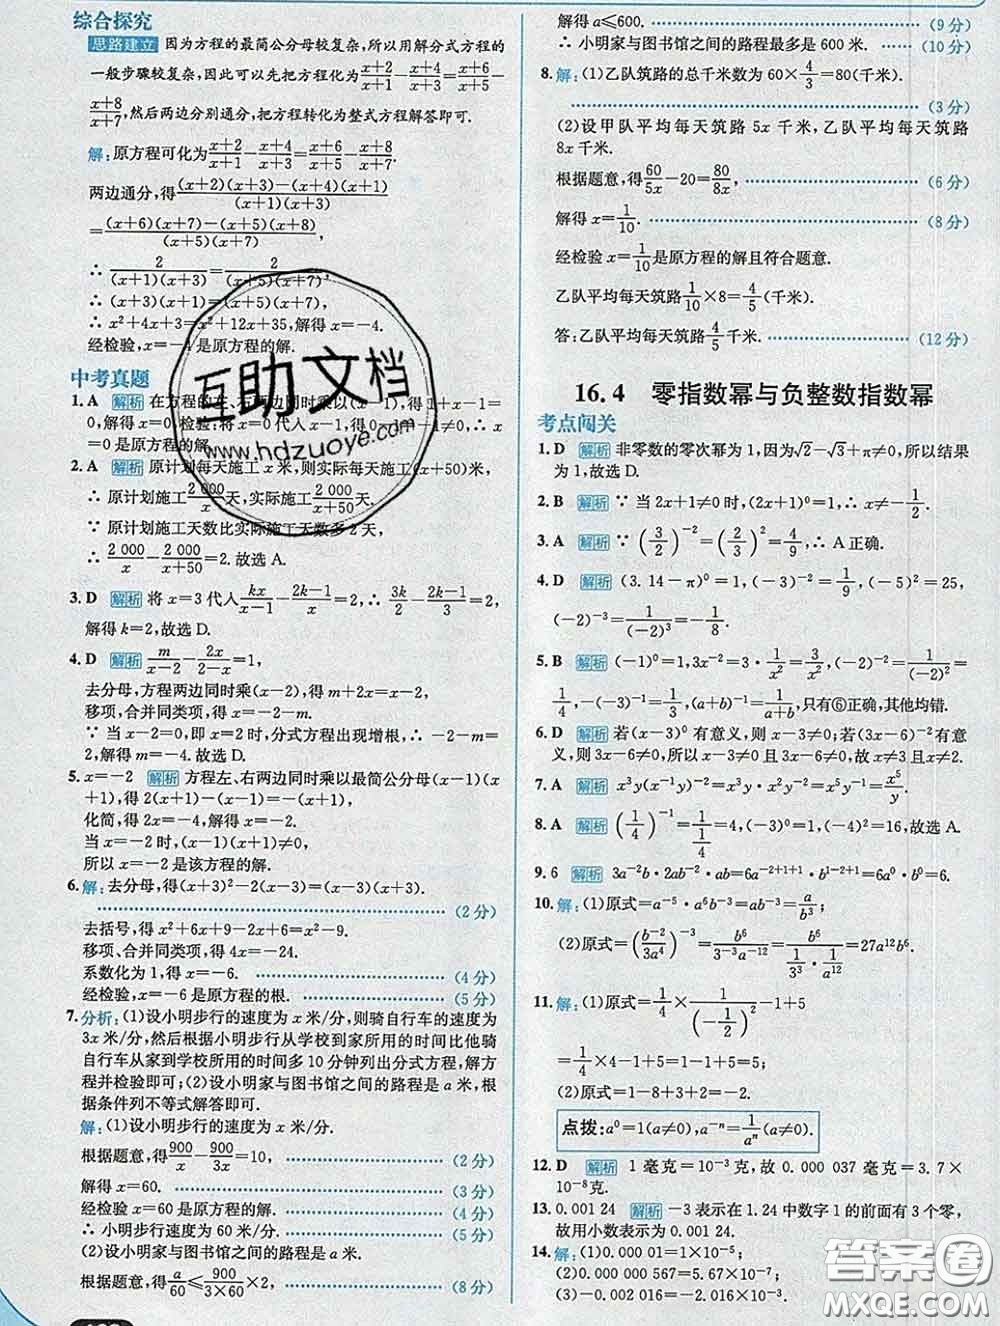 综合探究
思路建立 因为方程的最简公分母较复杂,所以用解分式方程的
一般步骤较复杂,因此可以先把方程化为(x+2)/(x+1)-(x+4)/(x+3)=(x+6)/(x+5)-
(x+8)/(x+7),然后两边分别通分,把方程转化为整式方程解答即可.
解:原方程可化为(x+2)/(x+1)-(x+4)/(x+3)=(x+6)/(x+5)-(x+8)/(x+7).
两边通分,得((x+2)(x+3)-(x+4)(x+1))/((x+1)(x+3))
=((x+6)(x+7)-(x+5)(x+8))/((x+5)(x+7)),
∴ 2/((x+1)(x+3))=2/((x+5)(x+7)),
∴ x²+4x+3=x²+12x+35,解得x=-4.
经检验,x=-4是原方程的解.
中考真题
1.A 解析 在方程的左、右两边同时乘以(x-1),得1+x-1=
0,解得x=0.检验:将x=0代入x-1,得x-1=-1≠0,故x=0
是原方程的解.
2.A 解析 原计划每天施工x米,则实际每天施工(x+50)米,
∴ 原计划施工2 000/x天,实际施工2 000/(x+50)天.
∵ 原计划施工天数比实际施工天数多2天,
∴ 2 000/x-2 000/(x+50)=2.故选A.
3.D 解析 将x=3代入kx/(x-1)-(2k-1)/x=2,∴ 3k/2-(2k-1)/3=2,
解得k=2,故选D.
4.D 解析 m/(x-2)-2x/(2-x)=1,
去分母,方程两边同时乘(x-2),得m+2x=x-2.
移项,合并同类项,得x=-2-m.
∵ 当x-2=0,即x=2时,分式方程出现增根,∴ -2-m=
2,解得m=-4.故选D.
5.x=-2 解析 方程左、右两边同时乘以最简公分母(x-1)(x
+1),得2(x+1)-(x-1)=-(x+1),
化简,得2x=-4,解得x=-2.
当x=-2时,(x-1)(x+1)≠0,
所以x=-2是该方程的解.
6.解:去分母,得(x+3)²-2(x-3)=(x-3)(x+3).
(2分)
去括号,得x²+6x+9-2x+6=x²-9.
移项、合并同类项,得4x=-24.
系数化为1,得x=-6. (4分)
经检验,x=-6是原方程的根. (5分)
7.分析:(1)设小明步行的速度为x米/分,则骑自行车的速度为
3x米/分,然后根据小明步行从学校到家所用的时间比他骑
自行车从家到学校所用的时间多10分钟列出分式方程,解方
程并检验即可;(2)设小明家与图书馆之间的路程是a米,根
据条件列不等式解答即可.
解:(1)设小明步行的速度为x米/分.
根据题意,得900/x-900/3x=10, (2分)
解得x=60. (3分)
经检验x=60是原方程的解. (4分)
∴ 小明步行速度为60米/分. (5分)
(2)设小明家与图书馆之间的路程是a米.
根据题意,得a/60≤900/(3×60)×2, (8分)
解得a≤600. (9分)
∴ 小明家与图书馆之间的路程最多是600米. (10分)
8.解:(1)乙队筑路的总千米数为60×4/3=80(千米).
(3分)
(2)设甲队平均每天筑路5x千米,乙队平均每天筑路
8x千米.
根据题意,得60/5x-20=80/8x, (6分)
解得x=1/10. (8分)
经检验x=1/10是原方程的解且符合题意.
乙队平均每天筑路1/10×8=4/5(千米).
答:乙队平均每天筑路4/5千米. (12分)
16.4 零指数幂与负整数指数幂
考点闯关
1.D 解析 非零数的零次幂为1,因为√2-√3+π≠0,所以结果
为1,故选D.
2.B 解析 ∵ 当2x+1≠0时,(2x+1)⁰=1,∴ x≠-1/2.
3.A 解析 ∵ (3/2)⁻²=(2/3)²=4/9,∴ A正确.
4.D 解析 (3.14-π)⁰=1,(-3)⁻²=1/9,(-5)²=25,
(-2)⁻³=1/(-2)³=1/-8.
5.B 解析 (-1)⁰=1,3x⁻²=3·1/x²=3/x²,(-2)⁻²=1/(-2)²=
1/4,-(-3)⁻¹=1/3,(a+b)⁻¹=1/(a+b),只有⑥正确,其他均错.
6.D 解析 若(x-3)⁰有意义,则x-3≠0;若(3x-6)⁻²有意
义,则3x-6≠0,所以x-3≠0且3x-6≠0,故x≠3且x≠2.
7.A 解析 x³y(x⁻¹y)⁻²=x³y·x²y⁻²=x⁵y⁻¹=x⁵/y.
8.A 解析 (1/4)⁻¹=1/(1/4)=4,(-3)⁰=1,(-4)²=16,故选A.
9.6 解析 3a⁻²b·2ab⁻²·ab=6a⁻²⁺¹⁺¹·b¹⁻²⁺¹=6a⁰·b⁰=6.
10.解:(1)原式=a⁻⁵·a⁶b⁻³=ab⁻³=a/b³;
(2)原式=(b⁻²/3a⁴)⁻³=b⁶/(3⁻³a⁻¹²)=b⁶/(1/3³·1/a¹²)=27a¹²b⁶.
11.解:(1)原式=1/4×1/(-1/2)²-1+5
=1/4×4-1+5=1-1+5=5;
(2)原式=1-8+3+2=-2.
点拨:a⁰=1(a≠0),a⁻ⁿ=1/aⁿ(a≠0).
12.D 解析 1毫克=10⁻³克,故0.000 037毫克=3.7×
10⁻⁸克.
13.0.001 24 解析 -3表示在1.24中数字1的前面有3个零,
故用小数表示为0.001 24.
14.解:(1)0.000 01=1×10⁻⁵;
(2)0.000 000 567=5.67×10⁻⁷;
(3)-0.002 016=-2.016×10⁻³.
互助文档
www.hdzuoye.com
答案圈
MXQE.COM